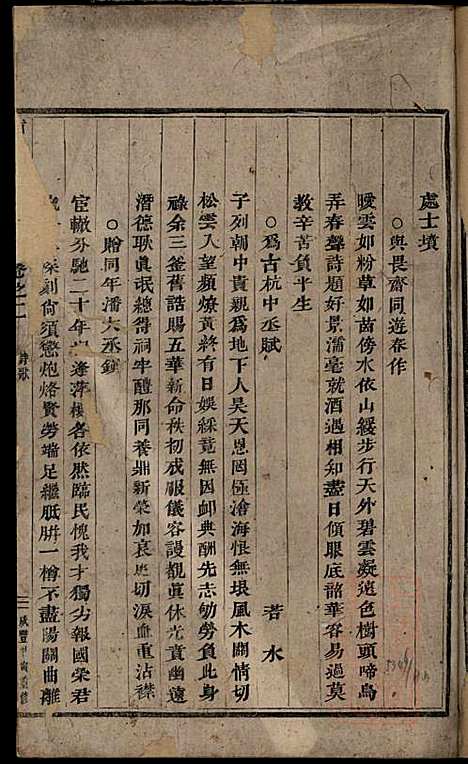 處士墳
○與畏齋同遊春作
曖雲如粉草如茵傍水依山緩步行天外碧雲凝遠色樹頭啼鳥
弄春聲詩題好景濡毫就酒遇相知盡日傾眼底韶華容易過莫
教辛苦負半生
○為古杭中丞賦 若水
子列朝中貴親為地下人昊天恩罔極滄海恨無垠風木關情切
松雲入望頻燎黃終有日娛綵竟無因卹典酬先志劬勞負此身
祿余三釜舊誥賜五華新命秩初成服儀容謾覩眞休光賁幽遠
潛德耿眞氓總得祠牢醴那同養鼎新榮加哀切淚血重沾襟
○贈同年潘大丞
宦轍分馳二十年逢萍梗各依然臨民愧我才獨劣報國榮君
深刻尚須懲炮烙賢勞端足繼胝胼一樽不盡陽關曲離
卷之二 詩歌 二 咸豐甲寅重修